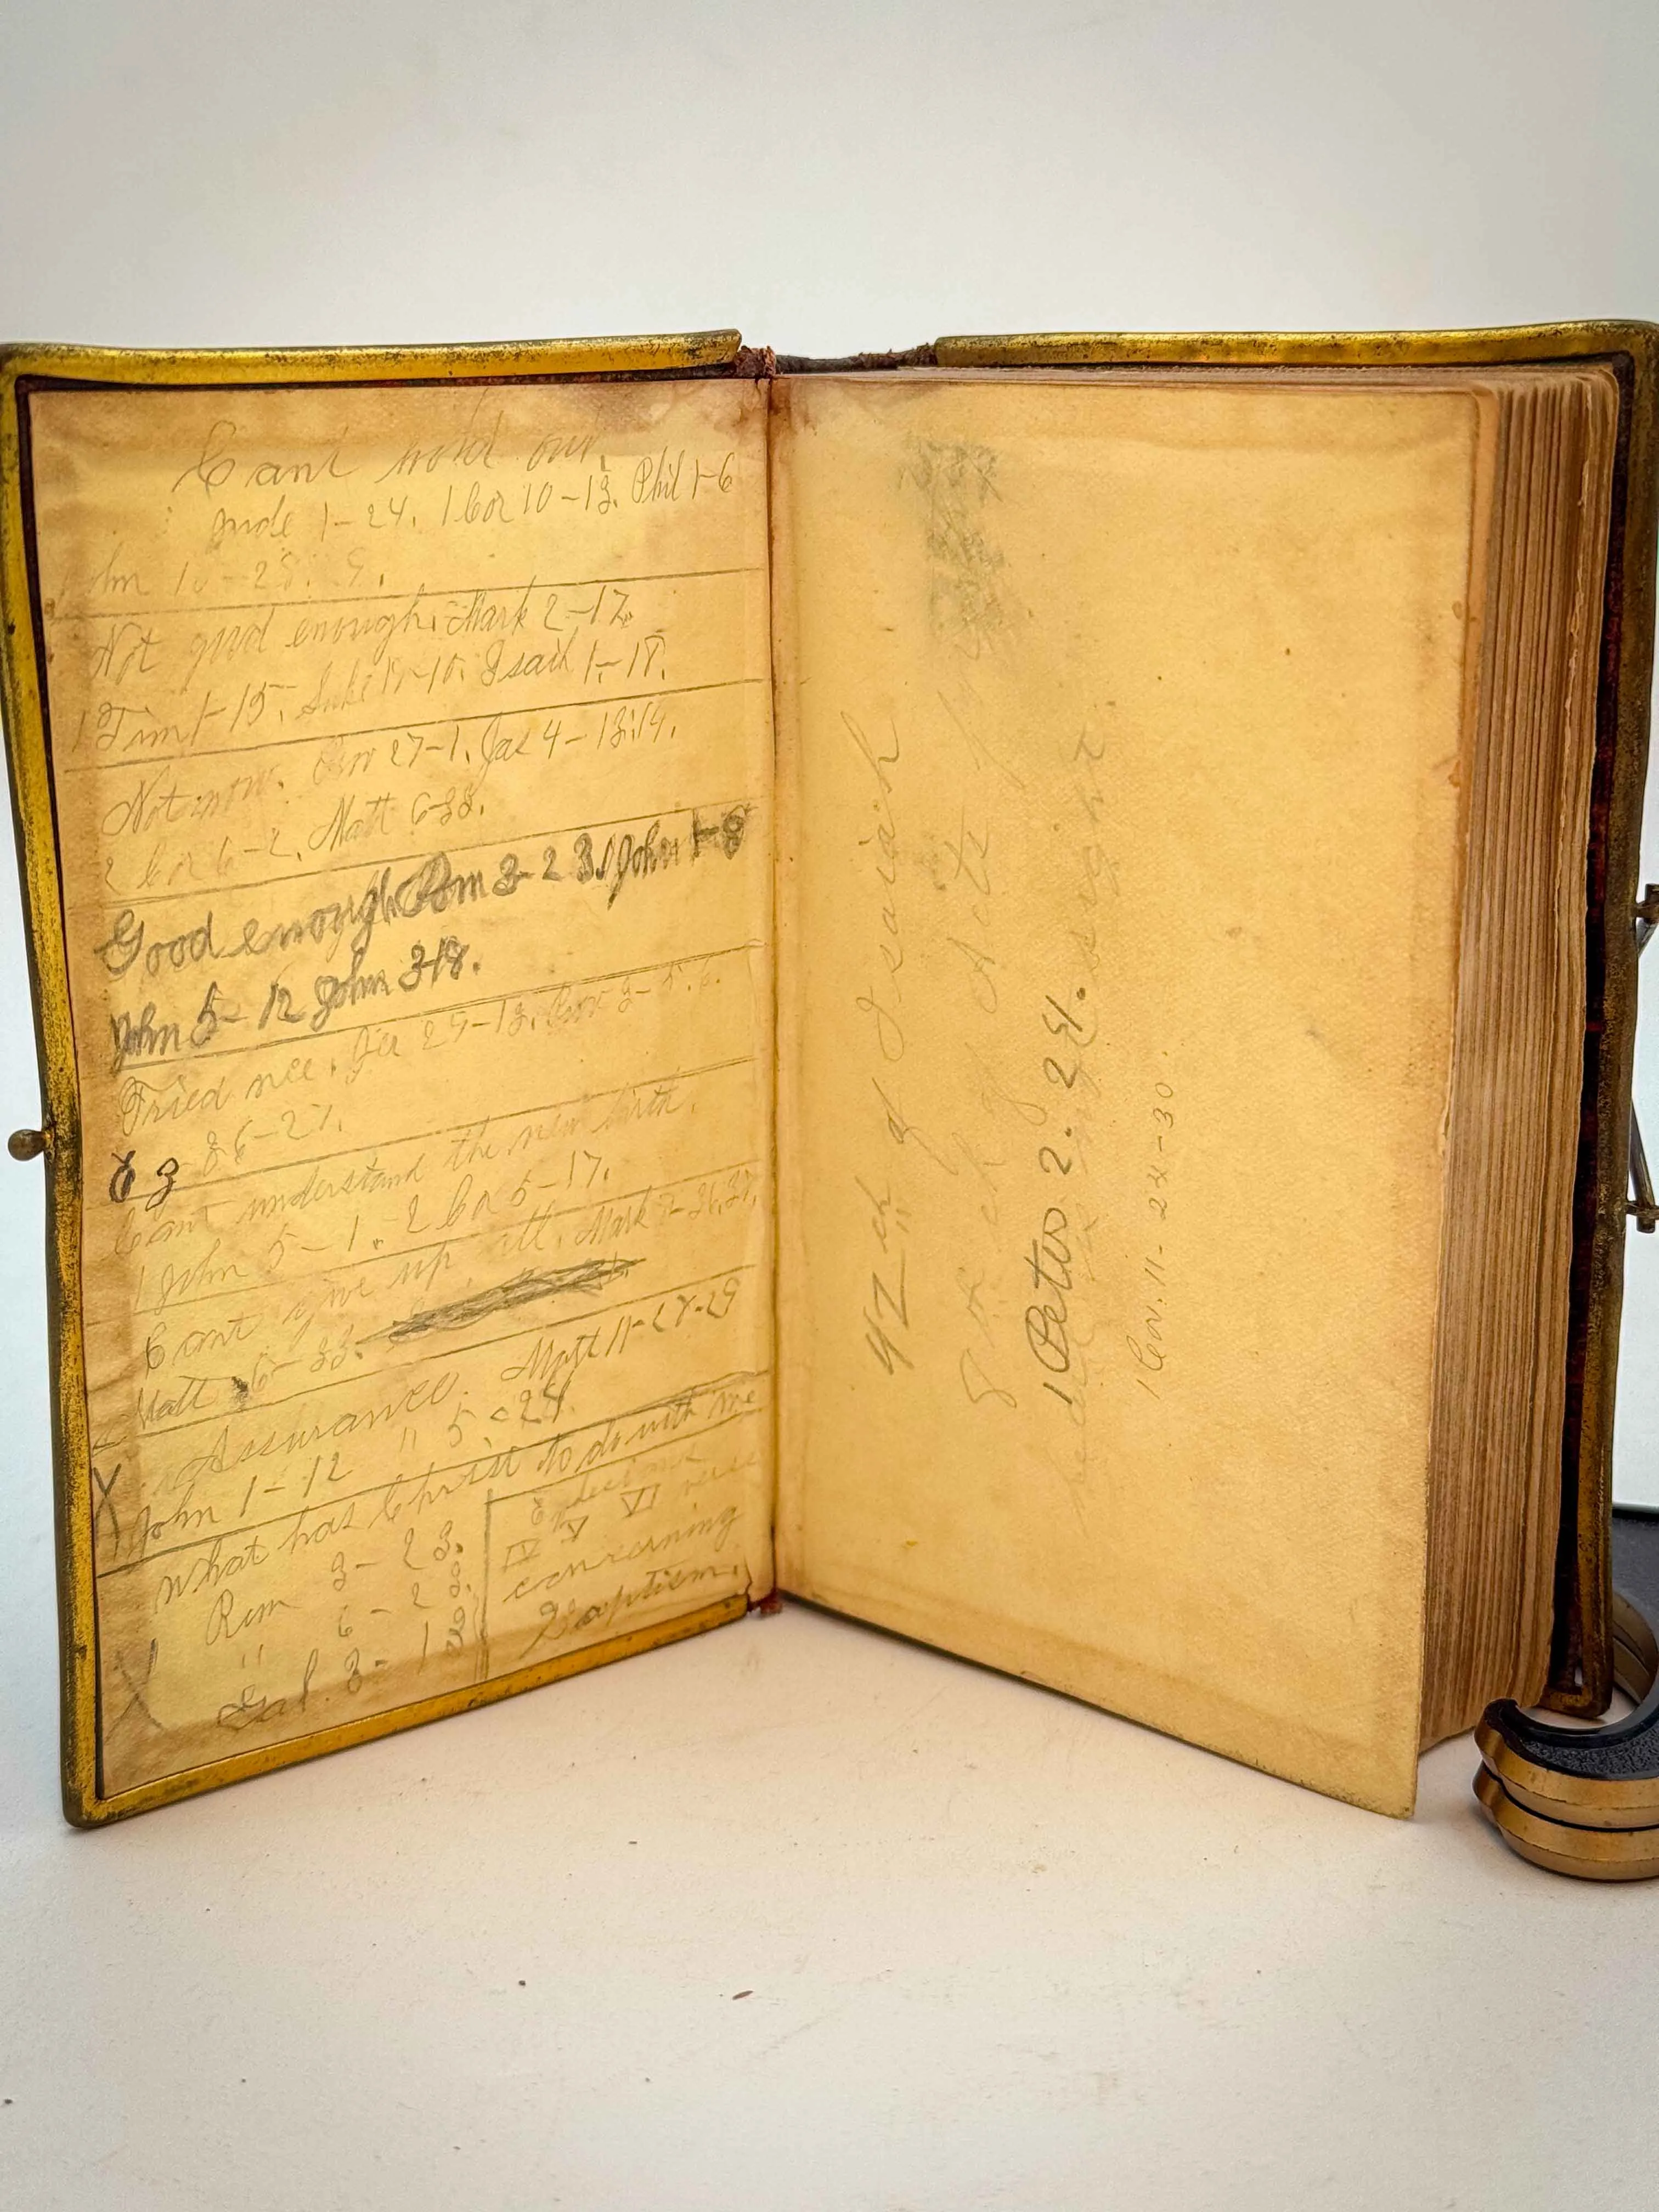 Cant hold out.
Jude 1-24. 1 Cor 10-13. Phil 1-6
ohn 10-28.
Not good enough. Mark 2-17.
1 Tim 1-15. Luke 19-10. Isaih 1-18.
Not now. Prov 27-1. Jas 4-13:14.
2 Cor 6-2. Matt 6-33.
Good enough Rom 3-23. 1 John 1-8
John 5-12 John 3-18.
Tried nce. Jer 29-13. Prov 3-5.6.
E 3 36-27.
Cant understand the new birth.
1 John 5-1. 2 Cor 5-17.
Cant give up all. Mark 8-36,37.
Matt 6-33.
X Assurance. Matt 11-28-29
John 1-12 " 5. 24.
What has Christ to do with me
Rom 3-23.
" 6-23.
Gal. 3-13
IV V VI verse
concerning
Baptism.
42 ch of Isaiah
8 ch of Acts
1 Peter 2. 24.
1 Cor. 11-24-30